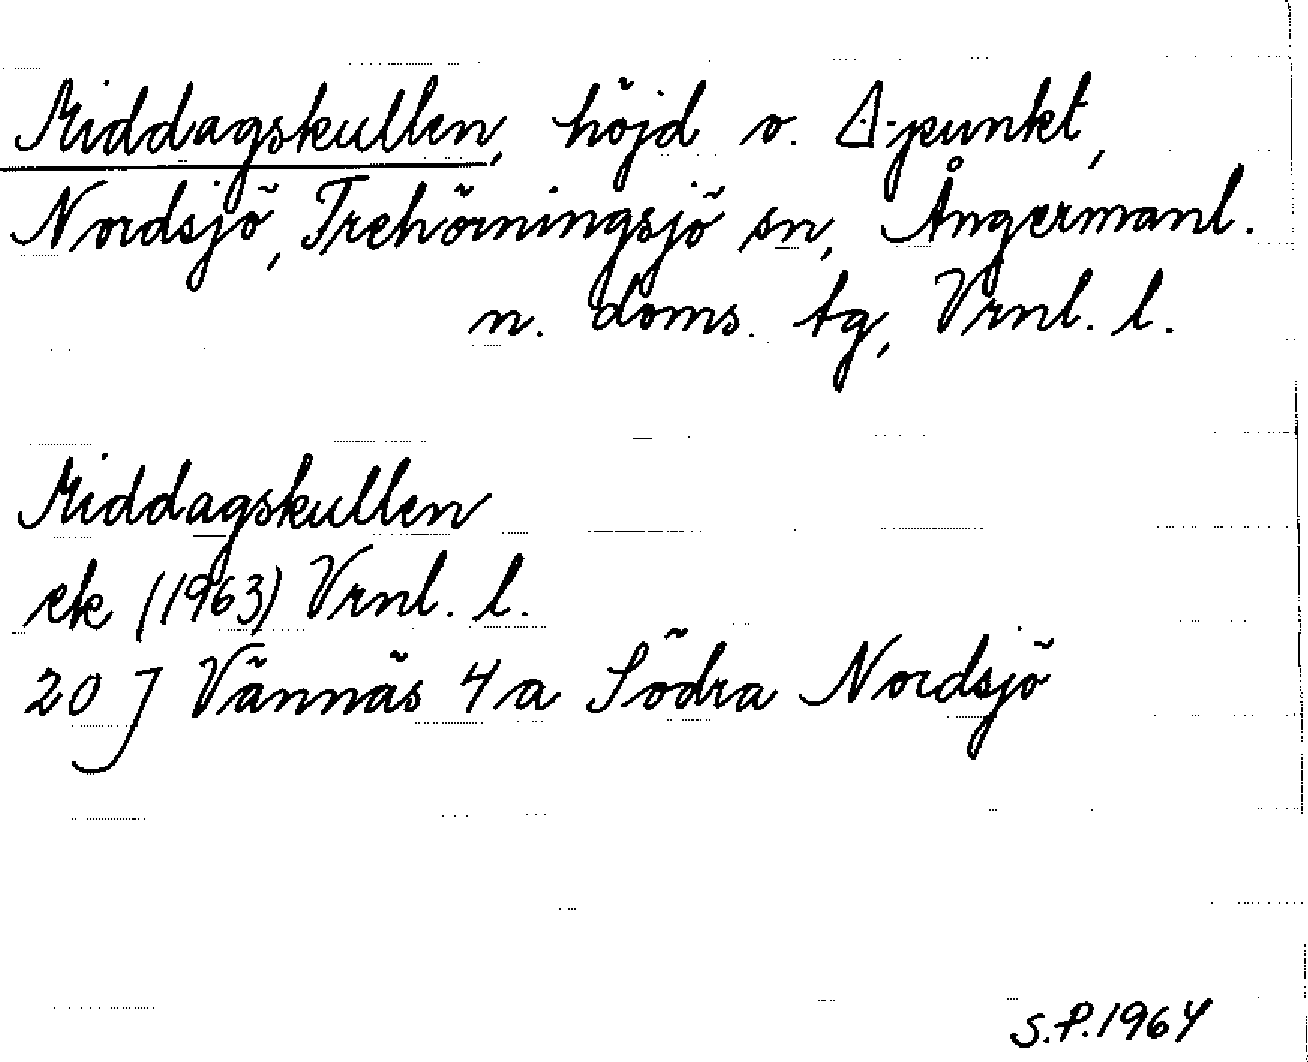 Middagskullen, höjd o. Δ-punkt,
Nordsjö, Trehörningsjö sn, Ångermanl.
n. doms. tg, Vrnl. l.
Middagskullen
ek (1963) Vrnl. l.
20 J Vännäs 4a Södra Nordsjö
S.P. 1964